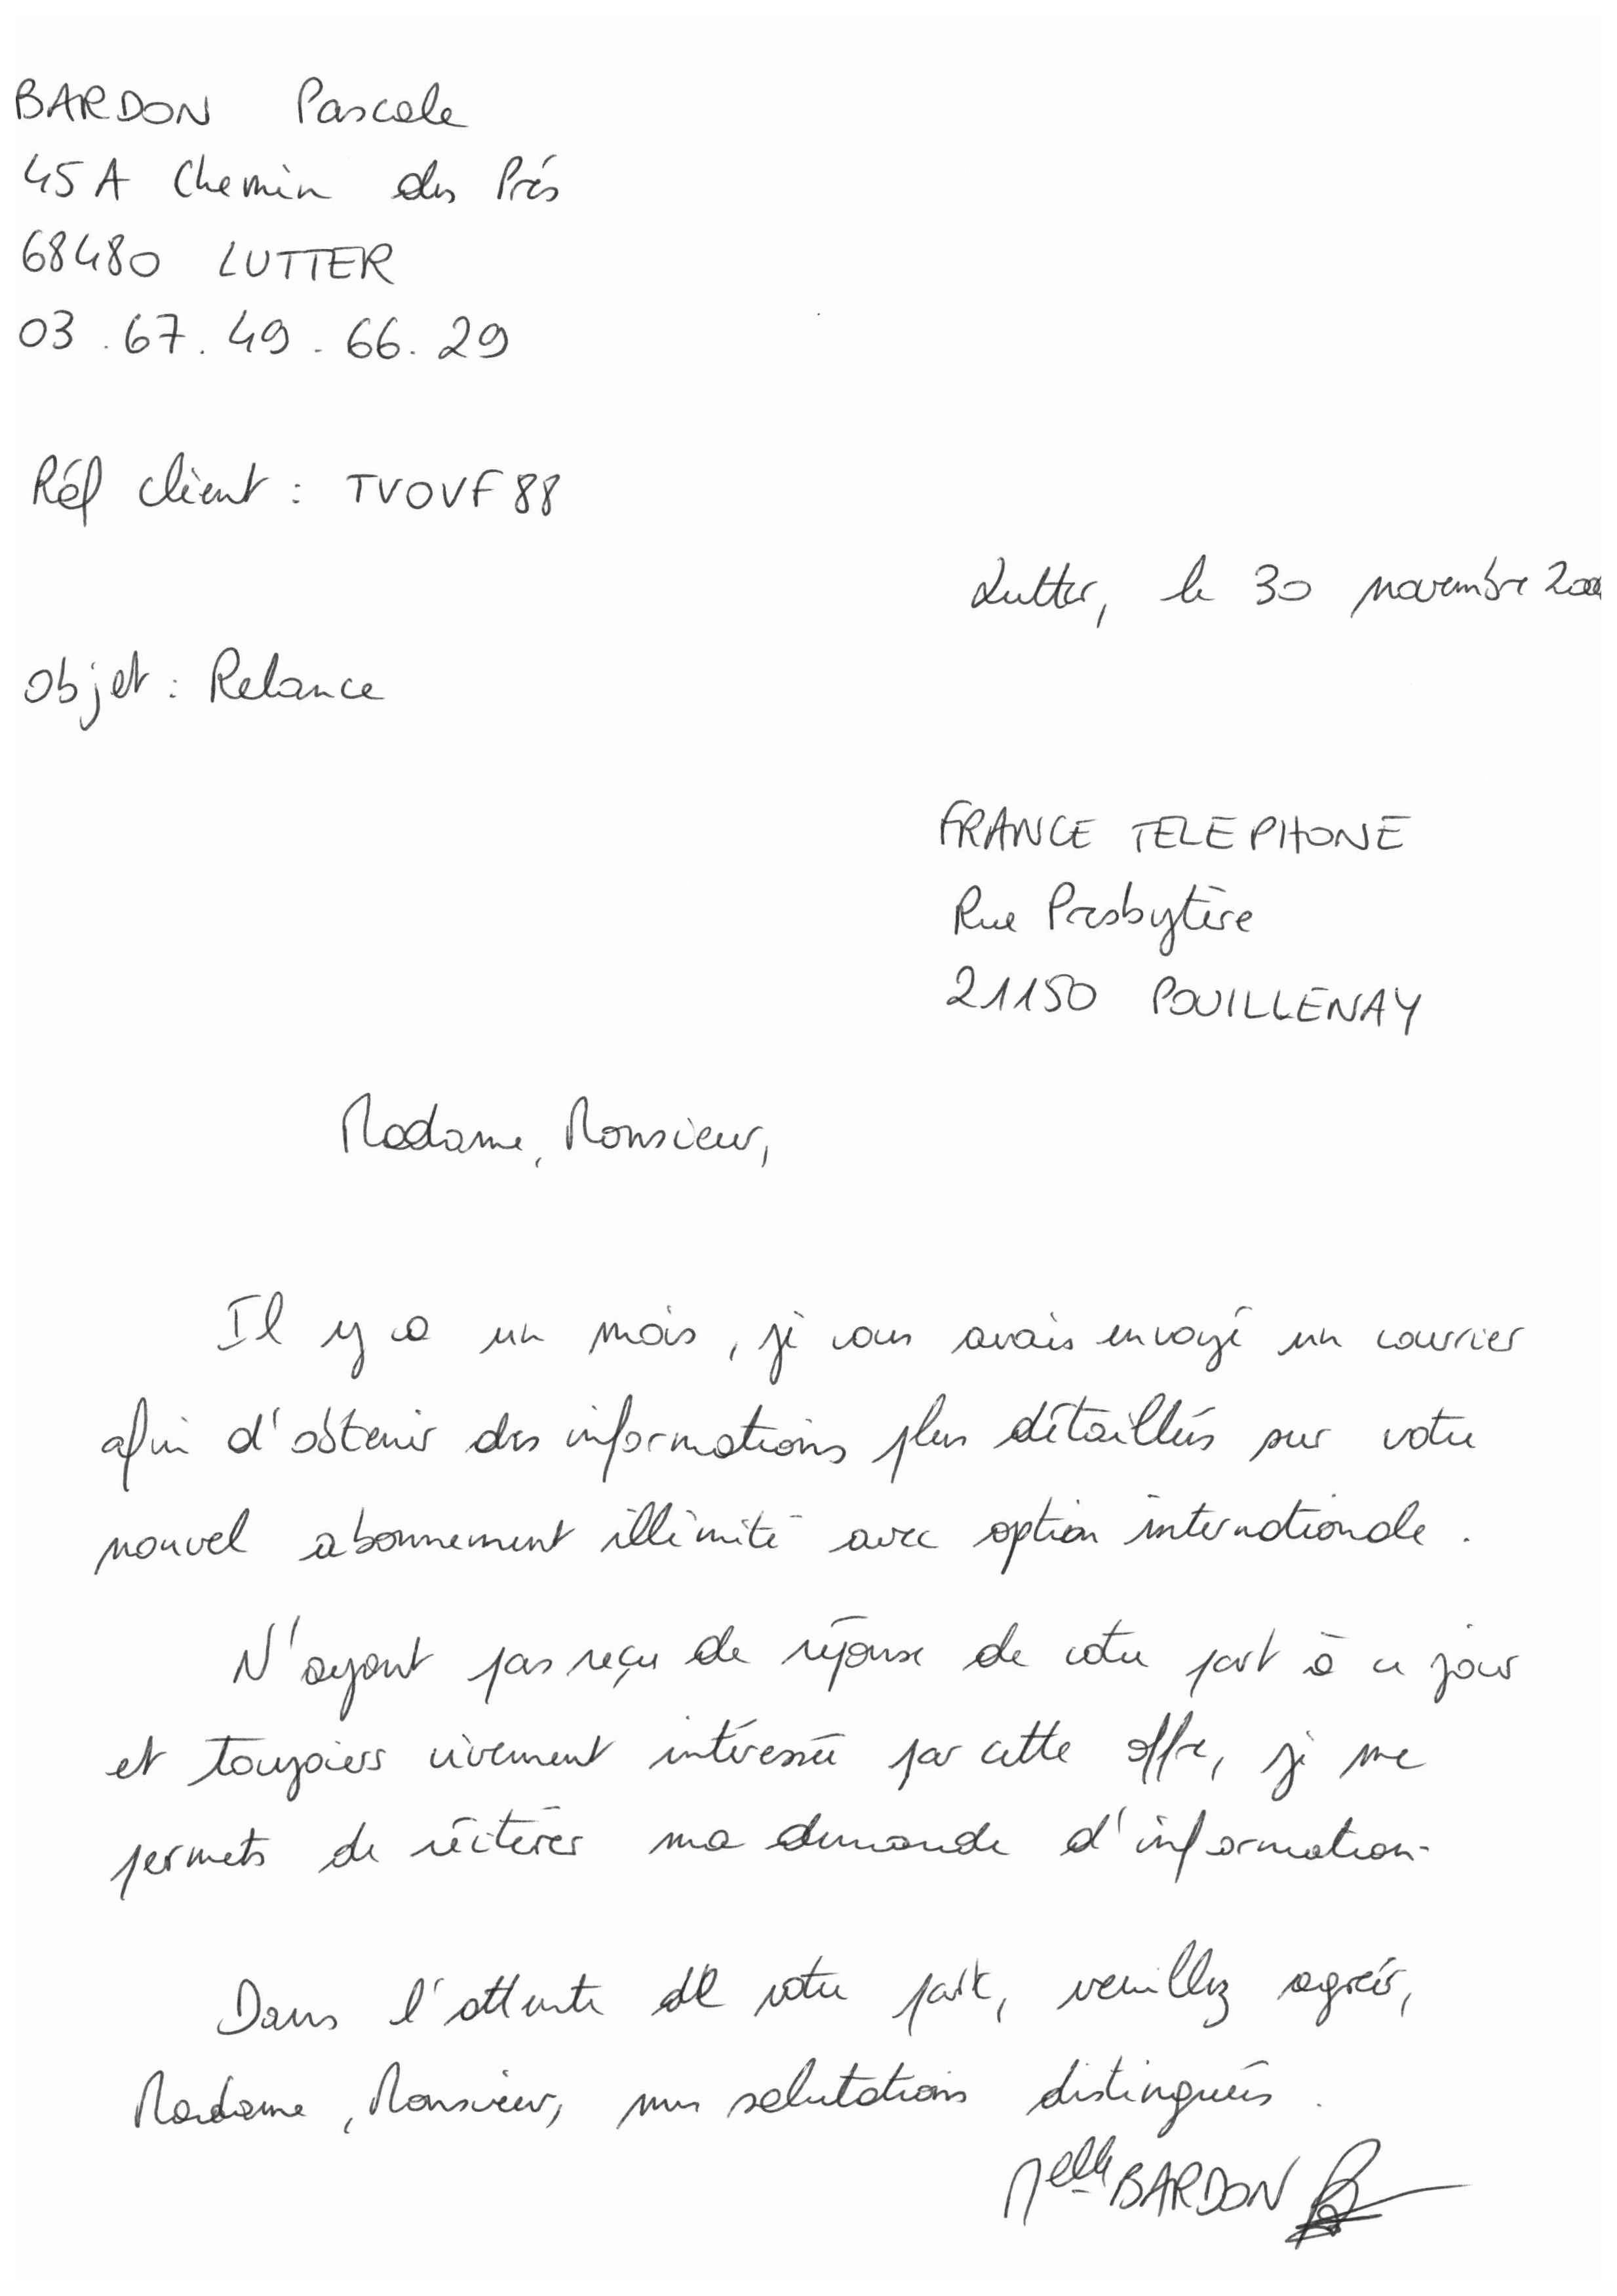 BARDON Pascale
45A Chemin des Prés
68480 LUTTER
03.67.49.66.29
Réf client : TVOVF88
Lutter, le 30 novembre
Objet : Relance
FRANCE TELEPHONE
Rue Presbytère
21150 POUILLENAY
Madame, Monsieur,
Il y a un mois, je vous avais envoyé un courrier
afin d'obtenir des informations plus détaillées sur votre
nouvel abonnement illimité avec option internationale.
N'ayant pas reçu de réponse de votre part à ce jour
et toujours vivement intéressée par cette offre, je me
permets de réitérer ma demande d'information.
Dans l'attente de votre part, veuillez agréer,
Madame, Monsieur, mes salutations distinguées.
Melle BARDON